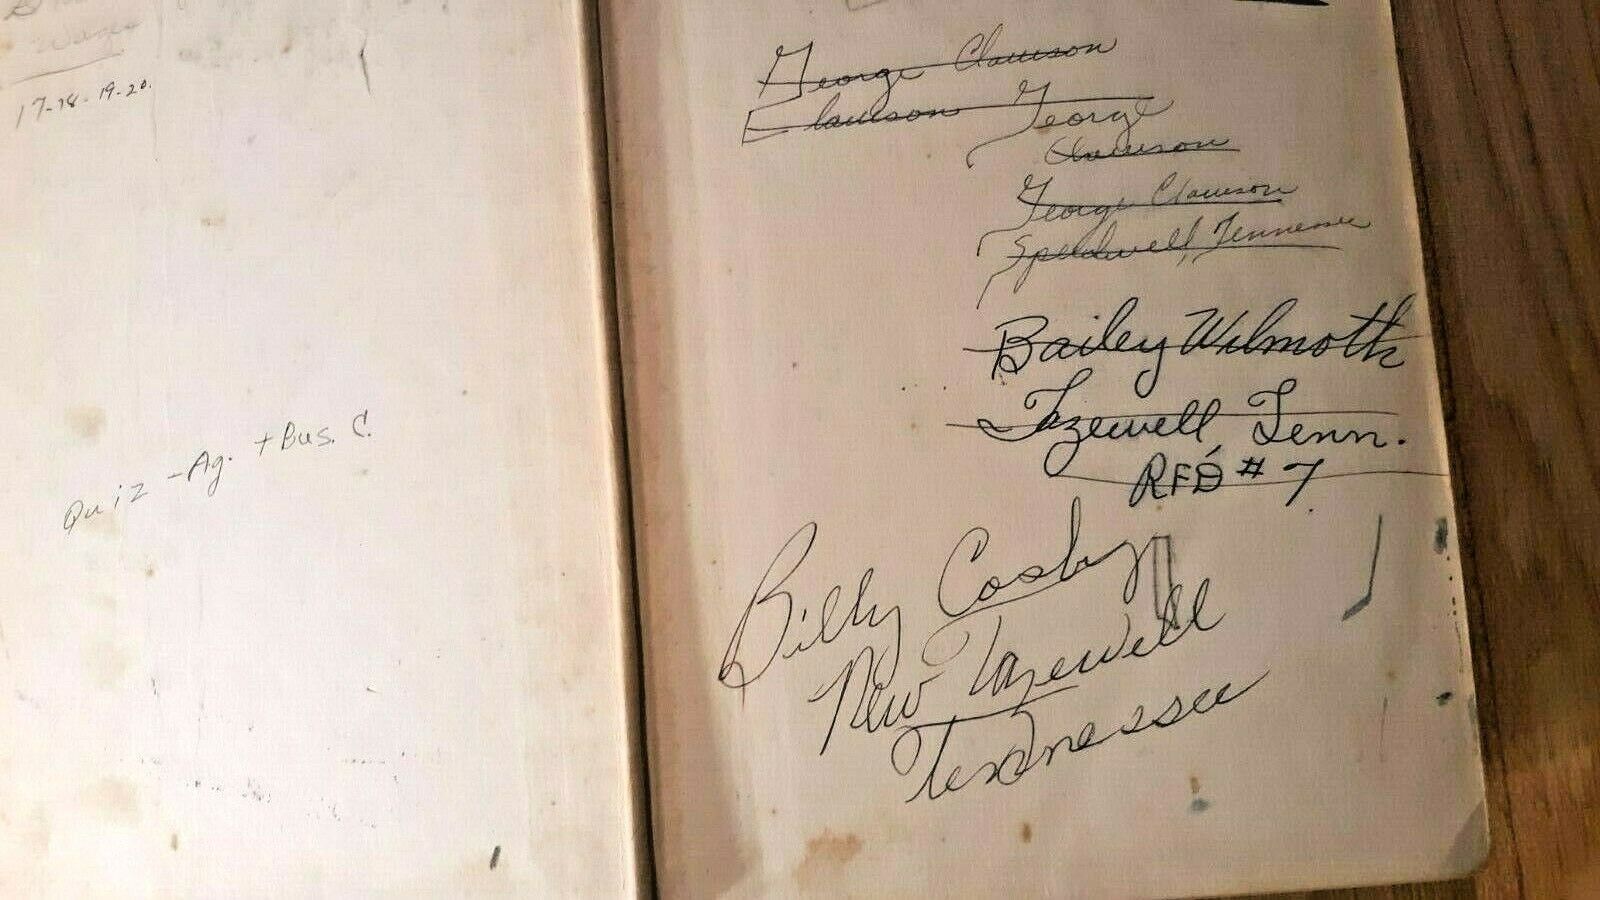 Wages
17-18-19-20.
Quiz - Ag. + Bus. C.
George Clawson
Clawson George
Clawson
George Clawson
Speedwell, Tennessee
Bailey Wilmoth
Tazewell, Tenn.
RFD #7
Billy Cosby
New Tazewell
Tennessee